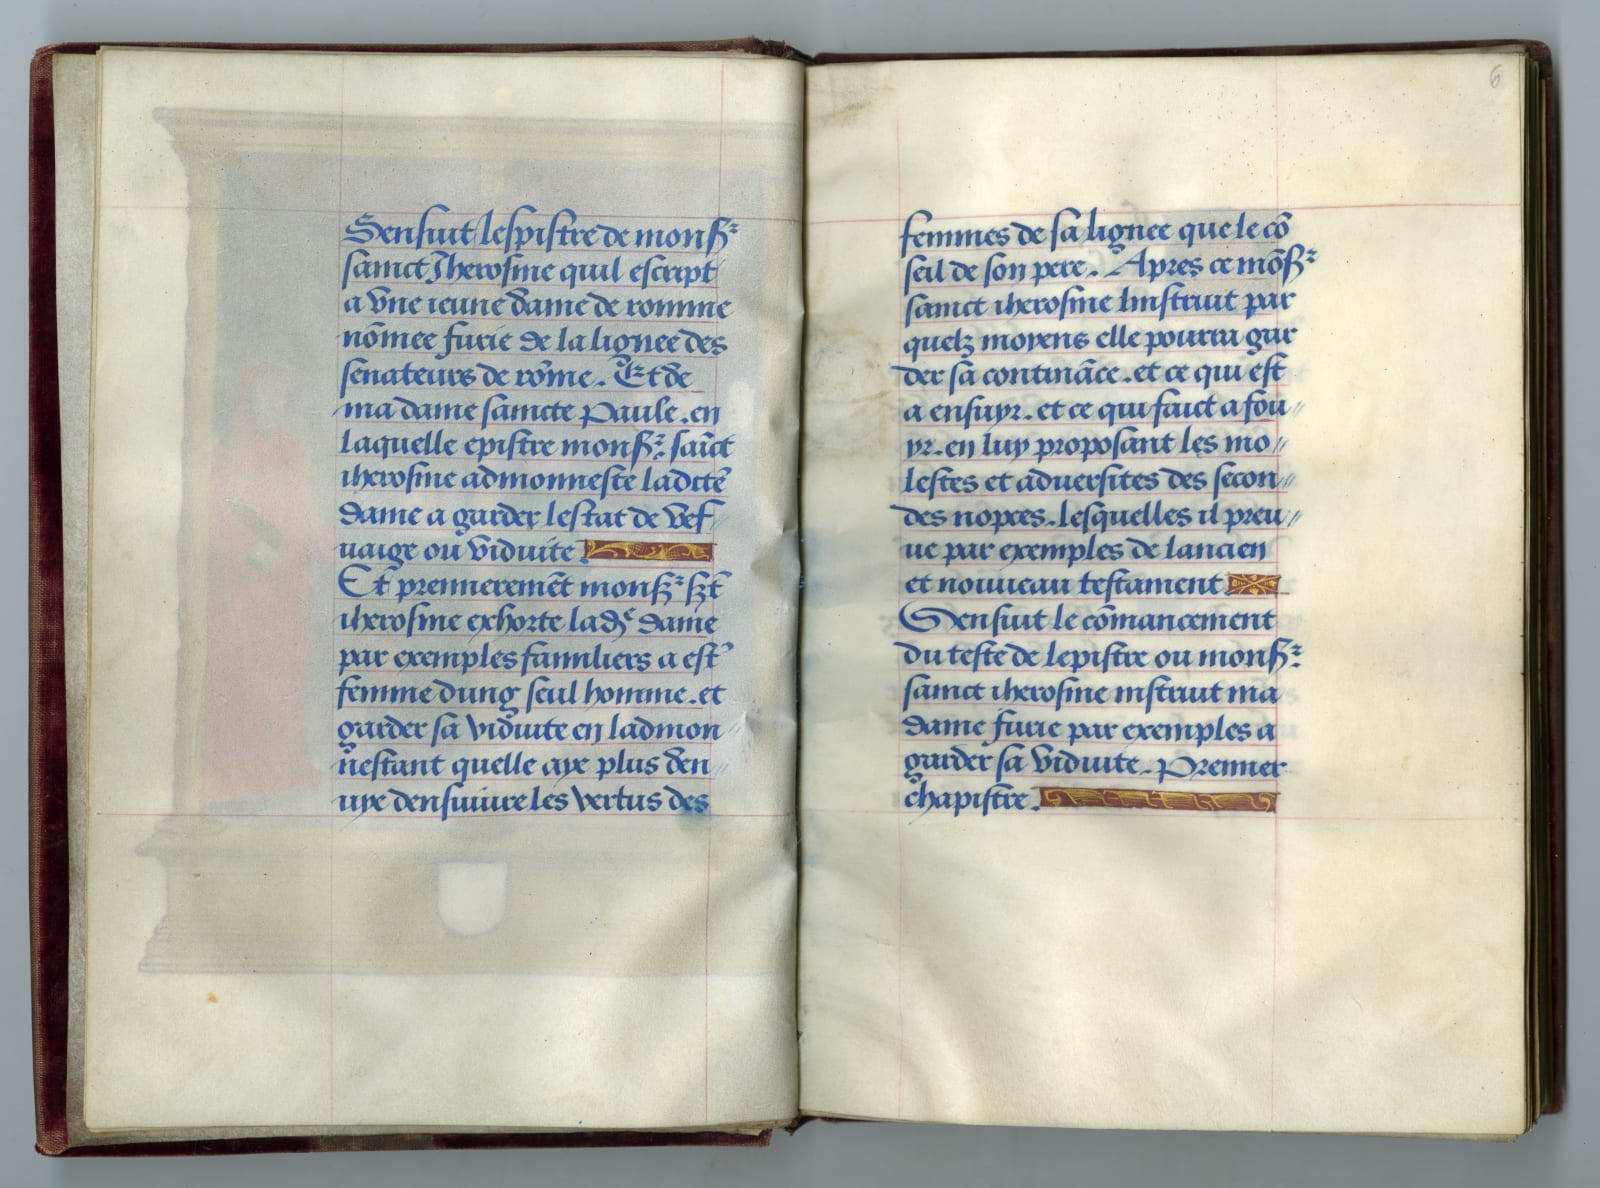 Sensuit lespistre de mons^r
sainct Jherosme quil escript
a vne ieune dame de romme
nōmee furie de la lignee des
senateurs de rōme. Et de
ma dame saincte Paule. en
laquelle epistre mons^r. saīct
iherosme admonneste ladctē
dame a garder lestat de vef//
uaige ou viduite
Et premieremēt mons^r sct
iherosme exhorte lad^e dame
par exemples familiers a est^r
femme dung seul homme. et
garder sa viduite en ladmon//
nestant quelle aye plus den//
uye densuiure les vertus des
6
femmes de sa lignee que le cō
seil de son pere. Apres ce mōs^r
sainct iherosme linstruit par
quelz moyens elle pourra gar
der sa contināce. et ce qui est
a ensuyr. et ce qui faict a fou//
yr. en luy proposant les mo//
lestes et aduersites des secon//
des nopces. lesquelles il preu//
ue par exemples de lancien
et nouueau testament
Sensuit le cōmancement
du teste de lepistre ou mons^r.
sainct iherosme instruit ma
dame furie par exemples a
garder sa viduite. Premier
chapistre.